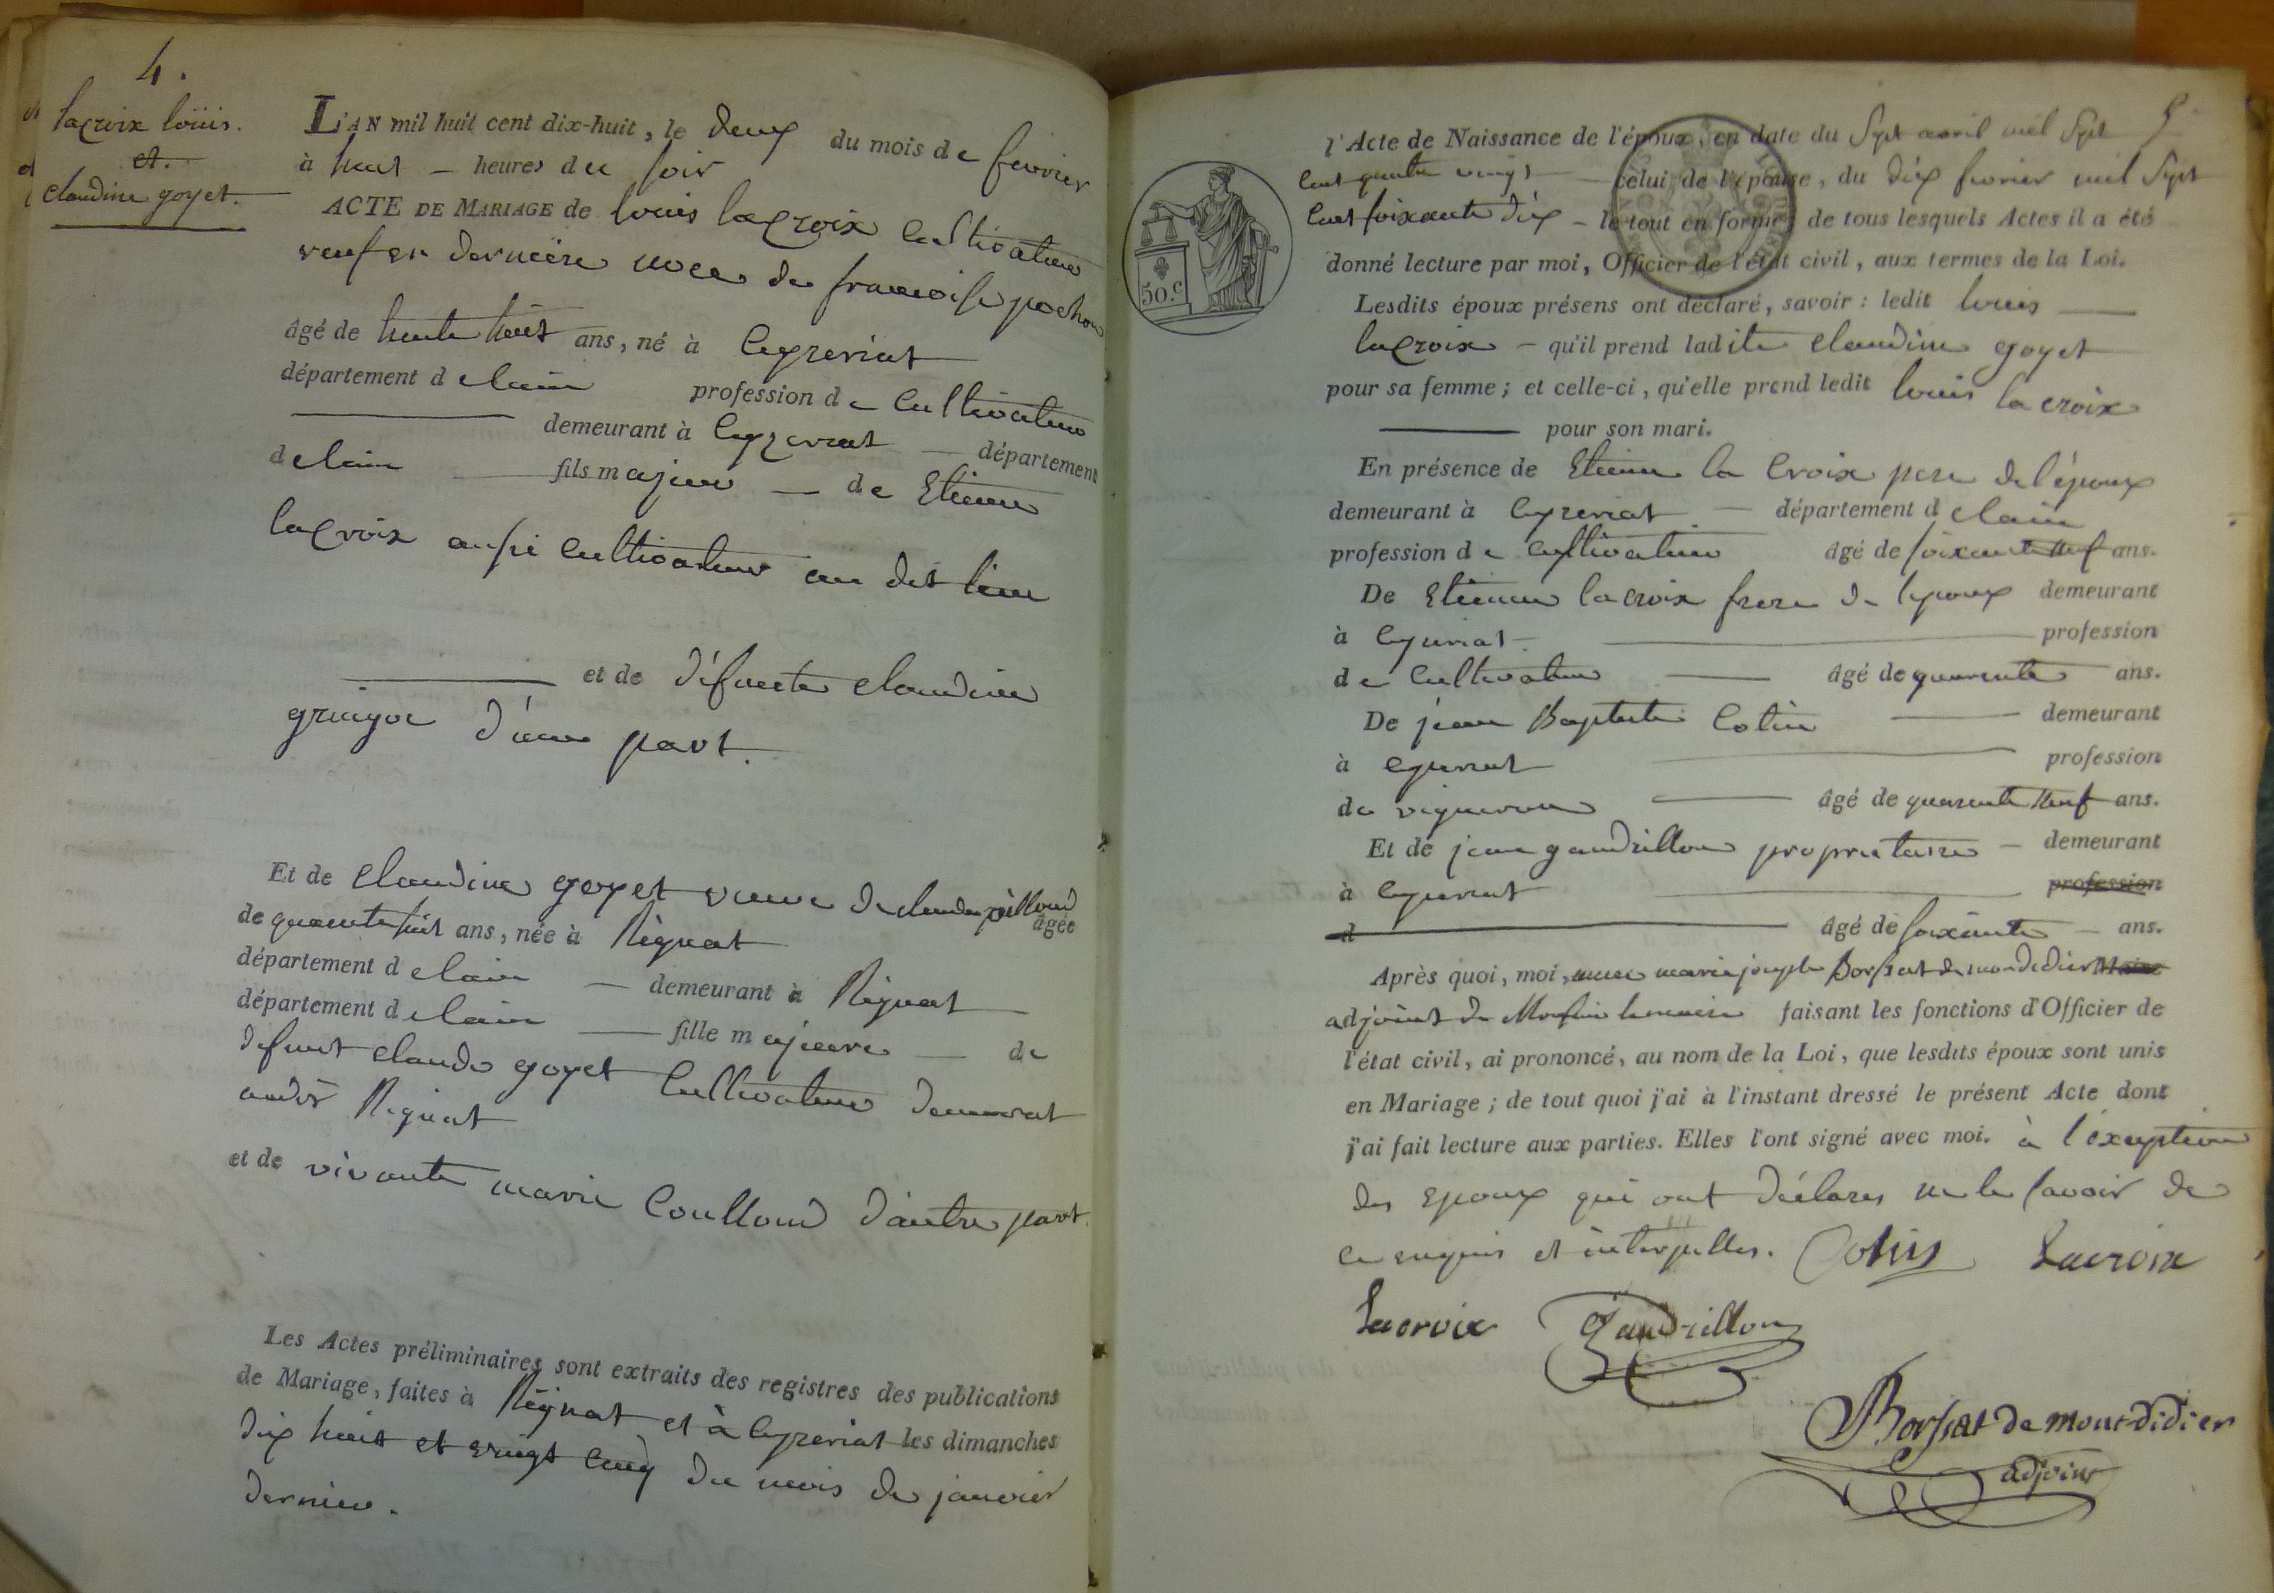 4.
lacroix loüis.
et.
claudine goyet.
L'AN mil huit cent dix-huit, le deux du mois de fevrier
à huit — heures du soir
ACTE DE MARIAGE de louis lacroix cultivateur
veuf en derniere noce de francoise pochon
âgé de trente huit ans, né à Ceyzeriat
département de lain profession de Cultivateur
demeurant à Ceyzeriat — département
de lain fils majeur — de Etienne
lacroix aussi cultivateur au dit lieu
et de défunte claudine
d'une part.
Et de claudine goyet veuve de claude pilloud âgée
de quarente huit ans, née à Rignat
département de lain — demeurant à Rignat
département de lain — fille majeure — de
defunt claude goyet Cultivateur demeurat
audit Rignat
et de vivante marie Coulloud d'autre part.
Les Actes préliminaires sont extraits des registres des publications
de Mariage, faites à Rignat et à Ceyzeriat les dimanches
dix huit et vingt cinq du mois de janvier
dernier.
5
l'Acte de Naissance de l'époux, en date du Sept avril mil Sept
Cent quatre vingt — celui de l'épouse, du dix fevrier mil Sept
Cent soixante dix — le tout en forme; de tous lesquels Actes il a été
donné lecture par moi, Officier de l'état civil, aux termes de la Loi.
50.c
Lesdits époux présens ont déclaré, savoir : ledit louis
lacroix — qu'il prend ladite claudine goyet
pour sa femme; et celle-ci, qu'elle prend ledit louis la croix
pour son mari.
En présence de Etienne la Croix pere de l'époux
demeurant à Ceyzeriat — département de lain
profession de cultivateur âgé de soixante neuf ans.
De Etienne lacroix frere de lepoux demeurant
à Ceyzeriat profession
de Cultivateur âgé de quarente ans.
De jean Baptiste Cotin demeurant
à Ceyzeriat profession
de vigneron âgé de quarente neuf ans.
Et de jean gaudrillon propriétaire — demeurant
à Ceyzeriat profession
d âgé de soixante — ans.
Après quoi, moi, marie joseph Borssat de mondidier Maire
adjoint de Monsieur le maire faisant les fonctions d'Officier de
l'état civil, ai prononcé, au nom de la Loi, que lesdits époux sont unis
en Mariage; de tout quoi j'ai à l'instant dressé le présent Acte dont
j'ai fait lecture aux parties. Elles l'ont signé avec moi. à l'exeption
des epoux qui ont déclarer ne le savoir de
ce enquis et interpelles. Cotin Lacroix
Lacroix Gaudrillon
Borssat de mont-didier
adjoint